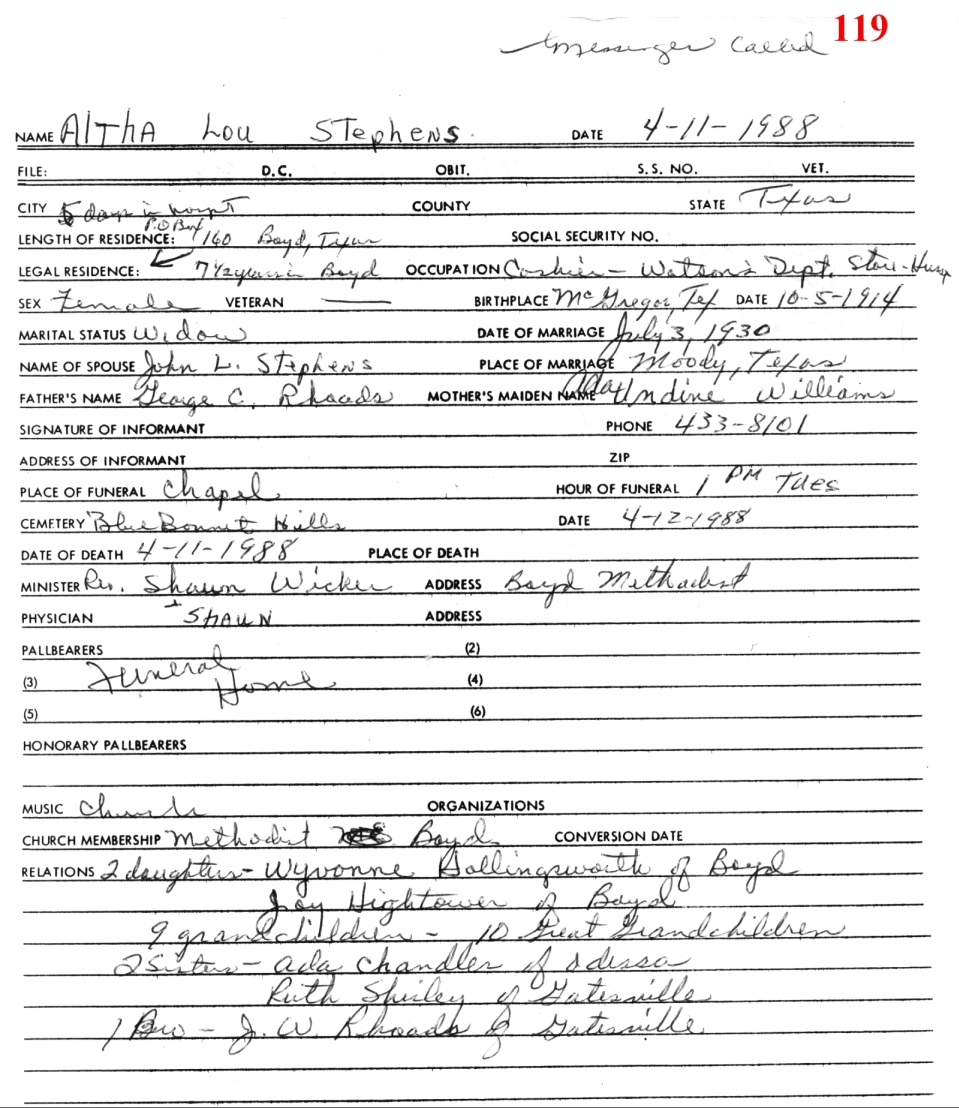 119
Messenger Called
NAME Altha Lou Stephens DATE 4-11-1988
FILE: D.C. OBIT. S.S. NO. VET.
CITY 5 days in hospt COUNTY STATE Texas
P.O Box
LENGTH OF RESIDENCE: 160 Boyd, Texas SOCIAL SECURITY NO.
LEGAL RESIDENCE: 7 1/2 years in Boyd OCCUPATION Cashier - Watson's Dept. Store-Hurst
SEX Female VETERAN BIRTHPLACE McGregor, Tex DATE 10-5-1914
MARITAL STATUS Widow DATE OF MARRIAGE July 3, 1930
NAME OF SPOUSE John L. Stephens PLACE OF MARRIAGE Moody, Texas
FATHER'S NAME George C. Rhoads MOTHER'S MAIDEN NAME Ada Undine Williams
SIGNATURE OF INFORMANT PHONE 433-8101
ADDRESS OF INFORMANT ZIP
PLACE OF FUNERAL Chapel HOUR OF FUNERAL 1 PM Tues
CEMETERY Blue Bonnet Hills DATE 4-12-1988
DATE OF DEATH 4-11-1988 PLACE OF DEATH
MINISTER Rev. Shawn Wicker ADDRESS Boyd Methodist
PHYSICIAN + SHAUN ADDRESS
PALLBEARERS (2)
(3) Funeral Home (4)
(5) (6)
HONORARY PALLBEARERS
MUSIC Church ORGANIZATIONS
CHURCH MEMBERSHIP Methodist Boyd CONVERSION DATE
RELATIONS 2 daughters - Wyvonne Hollingsworth of Boyd
Joy Hightower of Boyd
9 grandchildren - 10 Great Grandchildren
2 Sisters - Ada Chandler of Odessa
Ruth Shirley of Gatesville
1 Bro - J. W. Rhoads of Gatesville